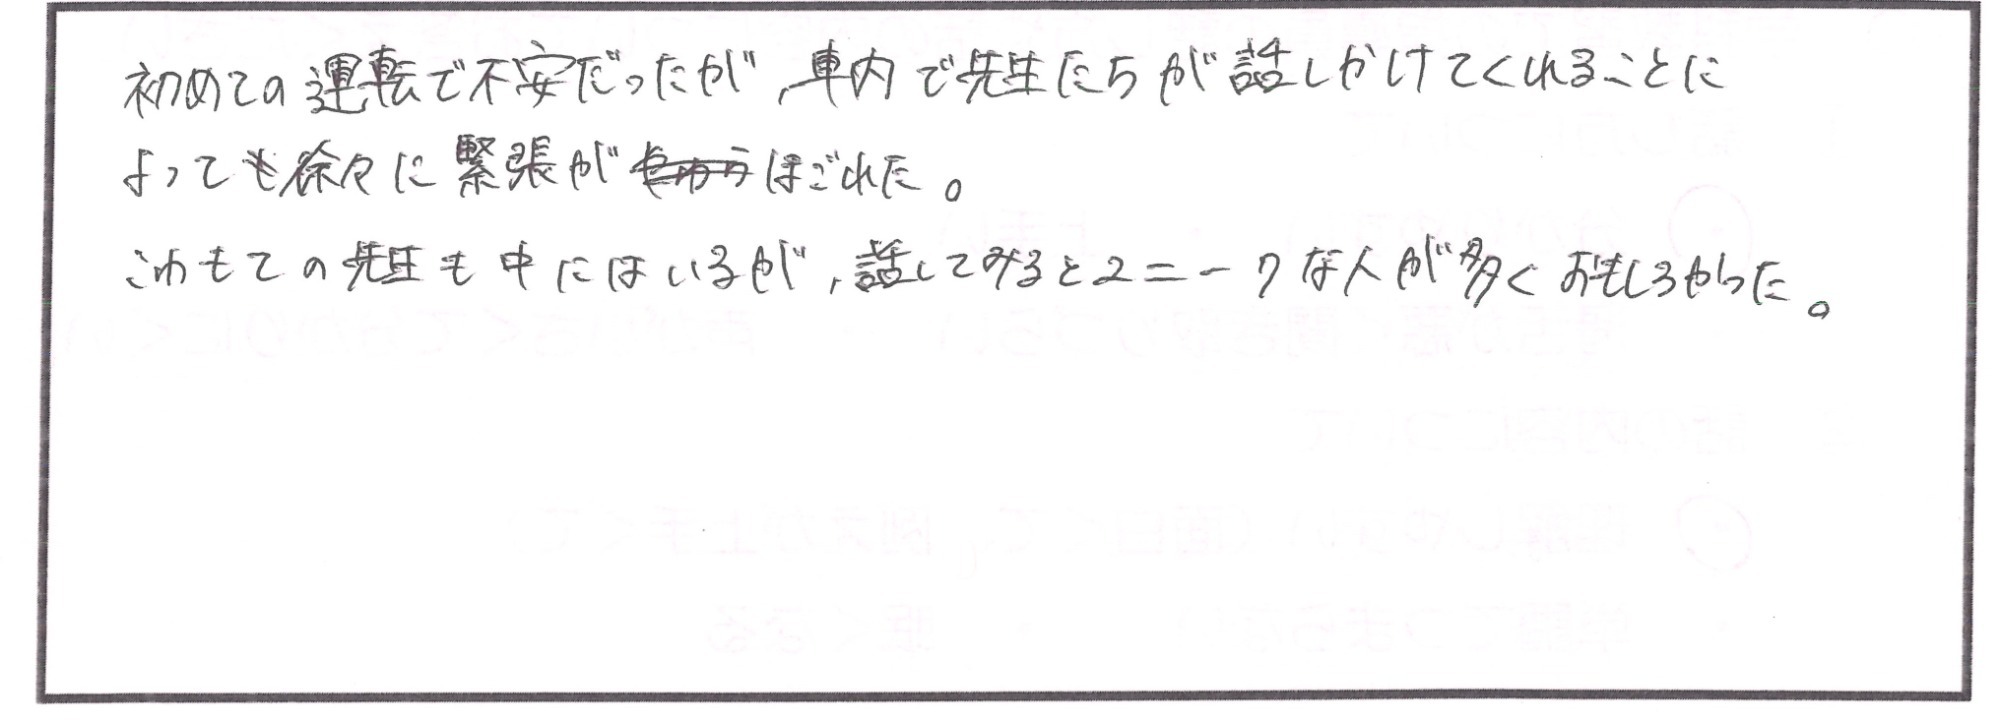 初めての運転で不安だったが、車内で先生たちが話しかけてくれることに
よっても徐々に緊張がほごれた。
こわもての先生も中にはいるが、話してみるとユニークな人が多くおもしろかった。